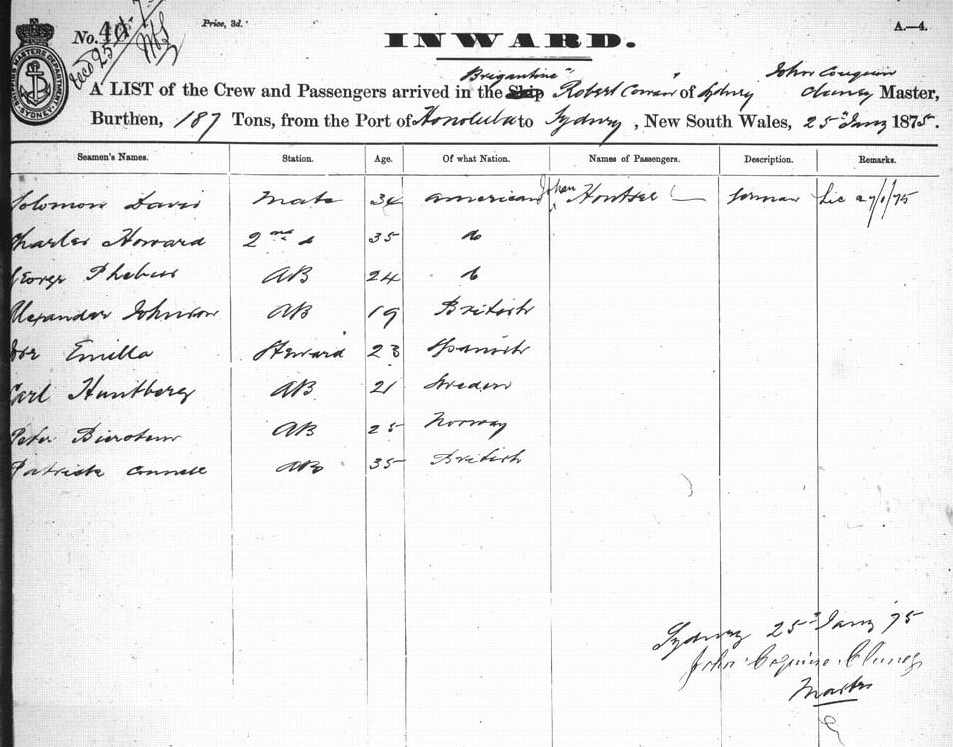 No. 40 Price, 3d. A.—4.
INWARD.
SHIPPING MASTERS DEPARTMENT SYDNEY
Brigantine John
A LIST of the Crew and Passengers arrived in the Ship Robert of Sydney Master,
Burthen, 187 Tons, from the Port of Honolulu to Sydney, New South Wales, 25th Jany 1875.
Seamen's Names. Station. Age. Of what Nation. Names of Passengers. Description. Remarks.
Solomon Davis Mate 34 American German Lic 27/1/75
Charles Howard 2nd do 35 do
George Phebus AB 24 do
Alexander Johnson AB 19 British
Joe Emilla Steward 23 Spanish
Carl Huntberg AB 21 Sweden
Peter AB 25 Norway
Patrick AB 35 British
Sydney 25th Jany 75
John
Master